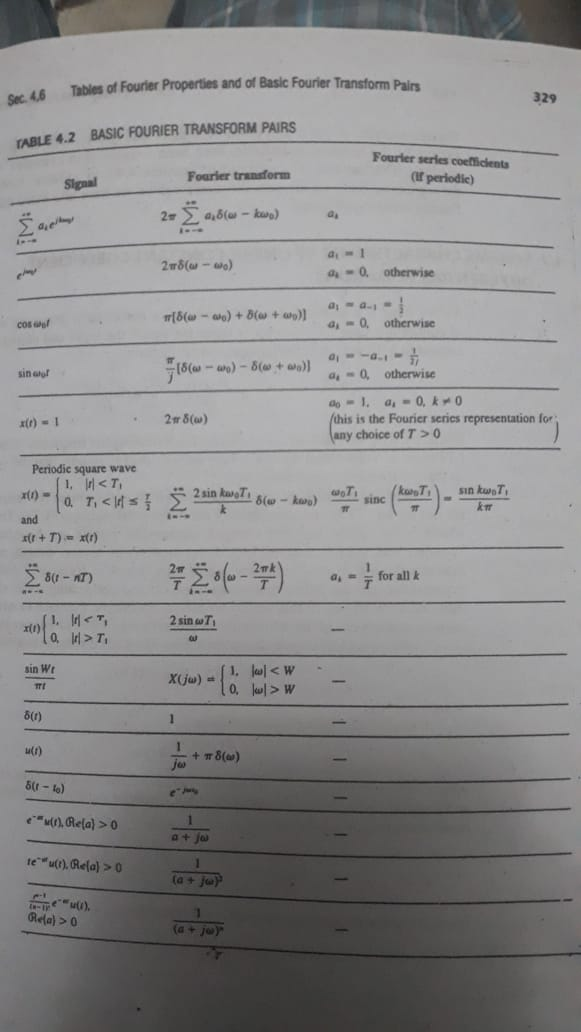 Sec. 4.6 Tables of Fourier Properties and of Basic Fourier Transform Pairs 329
TABLE 4.2 BASIC FOURIER TRANSFORM PAIRS
Signal Fourier transform Fourier series coefficients (if periodic)
∑_{k=-∞}^{+∞} a_k e^{jkω₀t} 2π ∑_{k=-∞}^{+∞} a_k δ(ω − kω₀) a_k
e^{jω₀t} 2πδ(ω − ω₀) a₁ = 1
a_k = 0, otherwise
cos ω₀t π[δ(ω − ω₀) + δ(ω + ω₀)] a₁ = a₋₁ = 1/2
a_k = 0, otherwise
sin ω₀t π/j [δ(ω − ω₀) − δ(ω + ω₀)] a₁ = −a₋₁ = 1/2j
a_k = 0, otherwise
x(t) = 1 2π δ(ω) a₀ = 1, a_k = 0, k ≠ 0
(this is the Fourier series representation for
any choice of T > 0)
Periodic square wave
x(t) = { 1, |t| < T₁
0, T₁ < |t| ≤ T/2
and
x(t + T) = x(t)
∑_{k=-∞}^{+∞} (2 sin kω₀T₁)/k δ(ω − kω₀) ω₀T₁/π sinc (kω₀T₁/π) = (sin kω₀T₁)/kπ
∑_{n=-∞}^{+∞} δ(t − nT) 2π/T ∑_{k=-∞}^{+∞} δ(ω − 2πk/T) a_k = 1/T for all k
x(t) { 1, |t| < T₁
0, |t| > T₁
(2 sin ωT₁)/ω —
(sin Wt)/πt X(jω) = { 1, |ω| < W
0, |ω| > W —
δ(t) 1 —
u(t) 1/jω + π δ(ω) —
δ(t − t₀) e^{−jωt₀} —
e^{−at}u(t), Re{a} > 0 1/(a + jω) —
te^{−at}u(t), Re{a} > 0 1/(a + jω)² —
t^{n−1}/(n−1)! e^{−at}u(t),
Re{a} > 0
1/(a + jω)ⁿ —